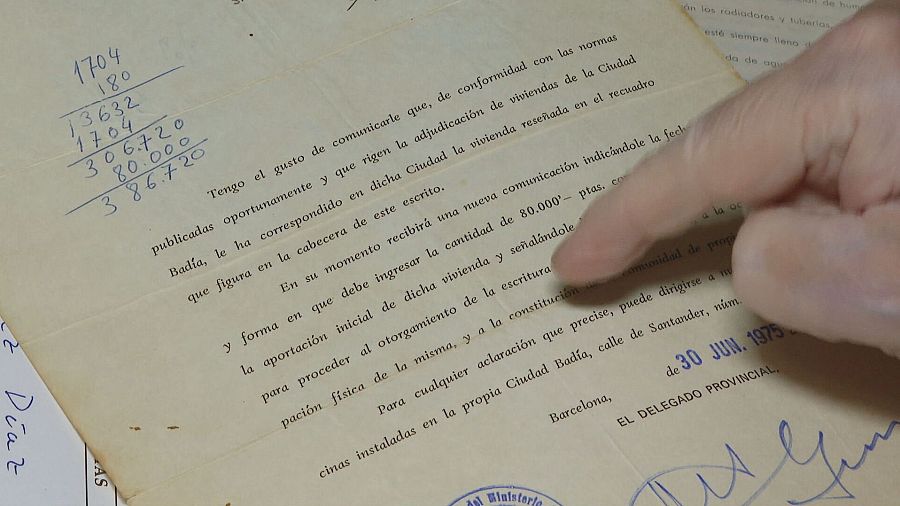 1704
180
13632
1704
306.720
80.000
386.720
Tengo el gusto de comunicarle que, de conformidad con las normas
publicadas oportunamente y que rigen la adjudicación de viviendas de la Ciudad
Badía, le ha correspondido en dicha Ciudad la vivienda reseñada en el recuadro
que figura en la cabecera de este escrito.
En su momento recibirá una nueva comunicación indicándole la fech
y forma en que debe ingresar la cantidad de 80.000'— ptas.
la aportación inicial de dicha vivienda y señalándole a la
para proceder al otorgamiento de la escritura
pación física de la misma, y a la constitución comunidad de
Para cualquier aclaración que precise, puede dirigirse a
cinas instaladas en la propia Ciudad Badía, calle de Santander, núm.
Barcelona, de 30 JUN. 1975
EL DELEGADO PROVINCIAL,
del Ministerio
los radiadores y tuberías
esté siempre lleno
Díaz